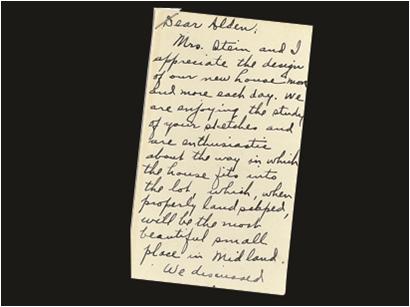 Dear Alden;
Mrs. Stein and I
appreciate the design
of our new house more
and more each day. We
are enjoying the study
of your sketches and
are enthusiastic
about the way in which
the house fits into
the lot, which, when
properly landscaped,
will be the most
beautiful small
place in Midland.
We discussed